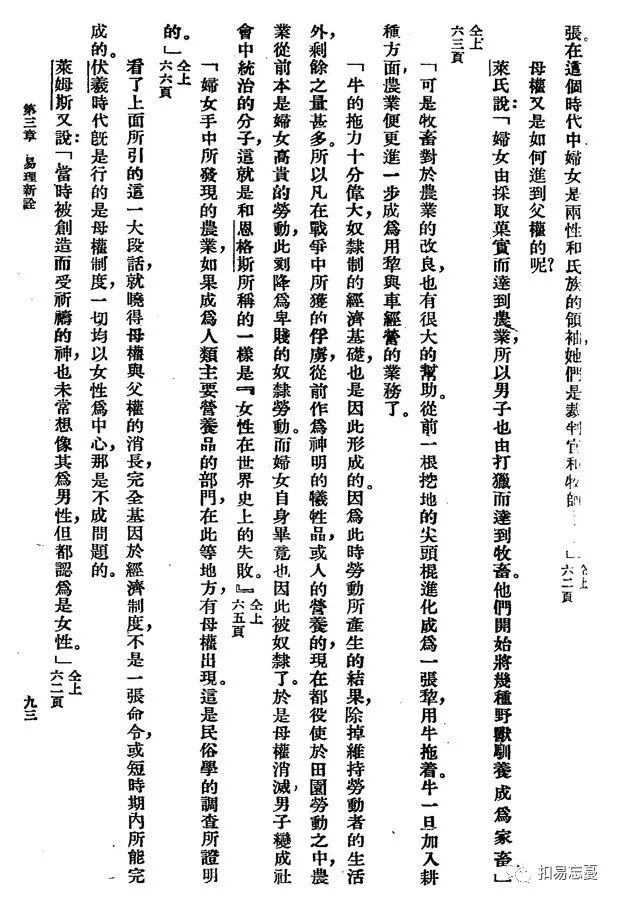 張在這個時代中婦女是兩性和氏族的領袖她們是裁判官和牧師……」仝上六二頁
母權又是如何進到父權的呢?
萊氏說:「婦女由採取菓實而達到農業,所以男子也由打獵而達到牧畜。他們開始將幾種野獸馴養成爲家畜」
仝上六三頁
「可是牧畜對於農業的改良,也有很大的幫助。從前一根挖地的尖頭棍進化成爲一張犂,用牛拖着。牛一旦加入耕
種方面,農業便更進一步成爲用犂與車經營的業務了。
「牛的拖力十分偉大,奴隸制的經濟基礎,也是因此形成的。因爲此時勞動所產生的結果,除掉維持勞動者的生活
外,剩餘之量甚多。所以凡在戰爭中所獲的俘虜,從前作爲神明的犧牲品,或人的營養的,現在都役使於田園勞動之中,農
業從前本是婦女高貴的勞動,此刻降爲卑賤的奴隸勞動。而婦女自身畢竟也因此被奴隸了。於是母權消滅,男子變成社
會中統治的分子,這就是和恩格斯所稱的一樣是『女性在世界史上的失敗。』仝上六五頁
「婦女手中所發現的農業,如果成爲人類主要營養品的部門,在此等地方,有母權出現。這是民俗學的調查所證明
的。」仝上六六頁
看了上面所引的這一大段話,就曉得母權與父權的消長,完全基因於經濟制度,不是一張命令,或短時期內所能完
成的。伏羲時代旣是行的是母權制度,一切均以女性爲中心,那是不成問題的。
萊姆斯又說:「當時被創造而受祈禱的神,也未常想像其爲男性,但都認爲是女性。」仝上六二頁
第三章 易理新詮
九三
扣易忘憂